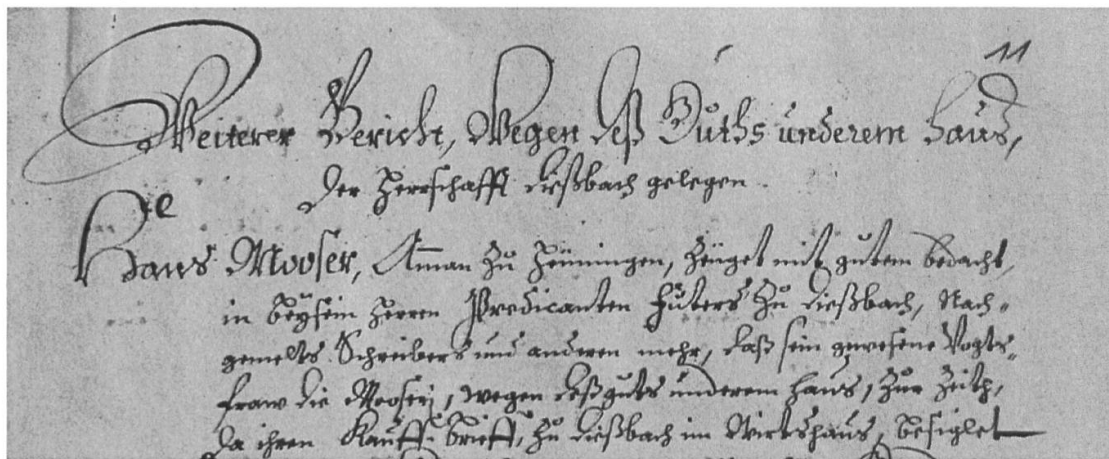 11
Weiterer Bericht, Wegen deß Guths underem haus,
der Herrschafft dießbach gelegen.
Hans Mooser, Amman zu Häuningen, zeüget mit gutem bedacht,
in beÿsein Herren Predicanten Huters zu dießbach, Nach-
gemelts Schreibers und anderen mehr, daß sein gewesene Vogts-
fraw die Mooserj, wegen deß guts underem haus, zur Zeith,
da ihren Kauff-brieff, zu dießbach im Wirtshaus, besiglet